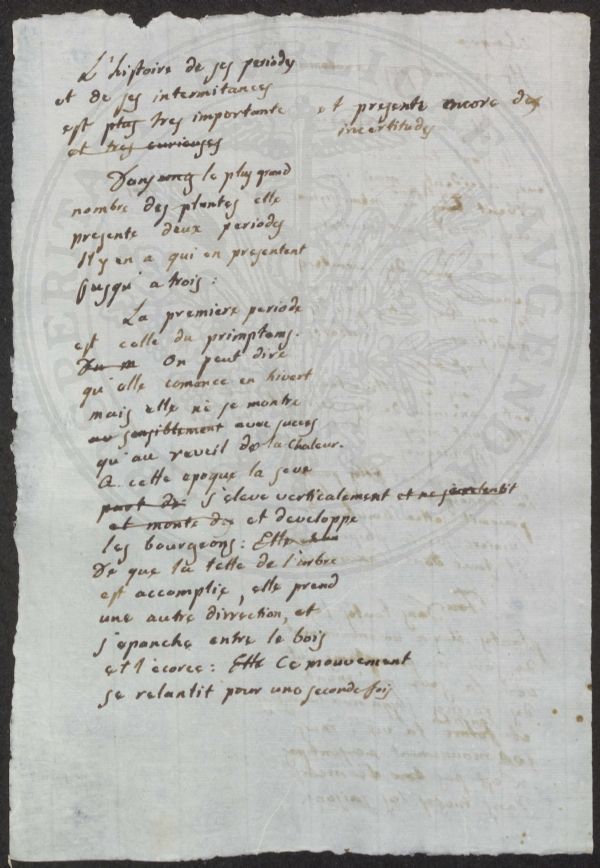 L'histoire de ses periodes
et de ses intermitances
est plus tres importante et presente encore des
incertitudes
et tres curieuses
Dans le plus grand
nombre des plantes elle
presente deux periodes
Il y en a qui en presentent
Jusqu'a trois :
La premiere periode
est celle du primptems.
On peut dire
qu'elle comance en hivert
mais elle ne se montre
sensiblement avec succes
qu'au reveil de la chaleur.
A cette epoque la seve
part de s'eleve verticalement et ne se relentit
et monte et developpe
les bourgeons : Elle
De que la tette de l'arbre
est accomplie, elle prend
une autre dirrection, et
s'epanche entre le bois
et l'ecorce : Elle Ce mouvement
se relantit pour une seconde fois